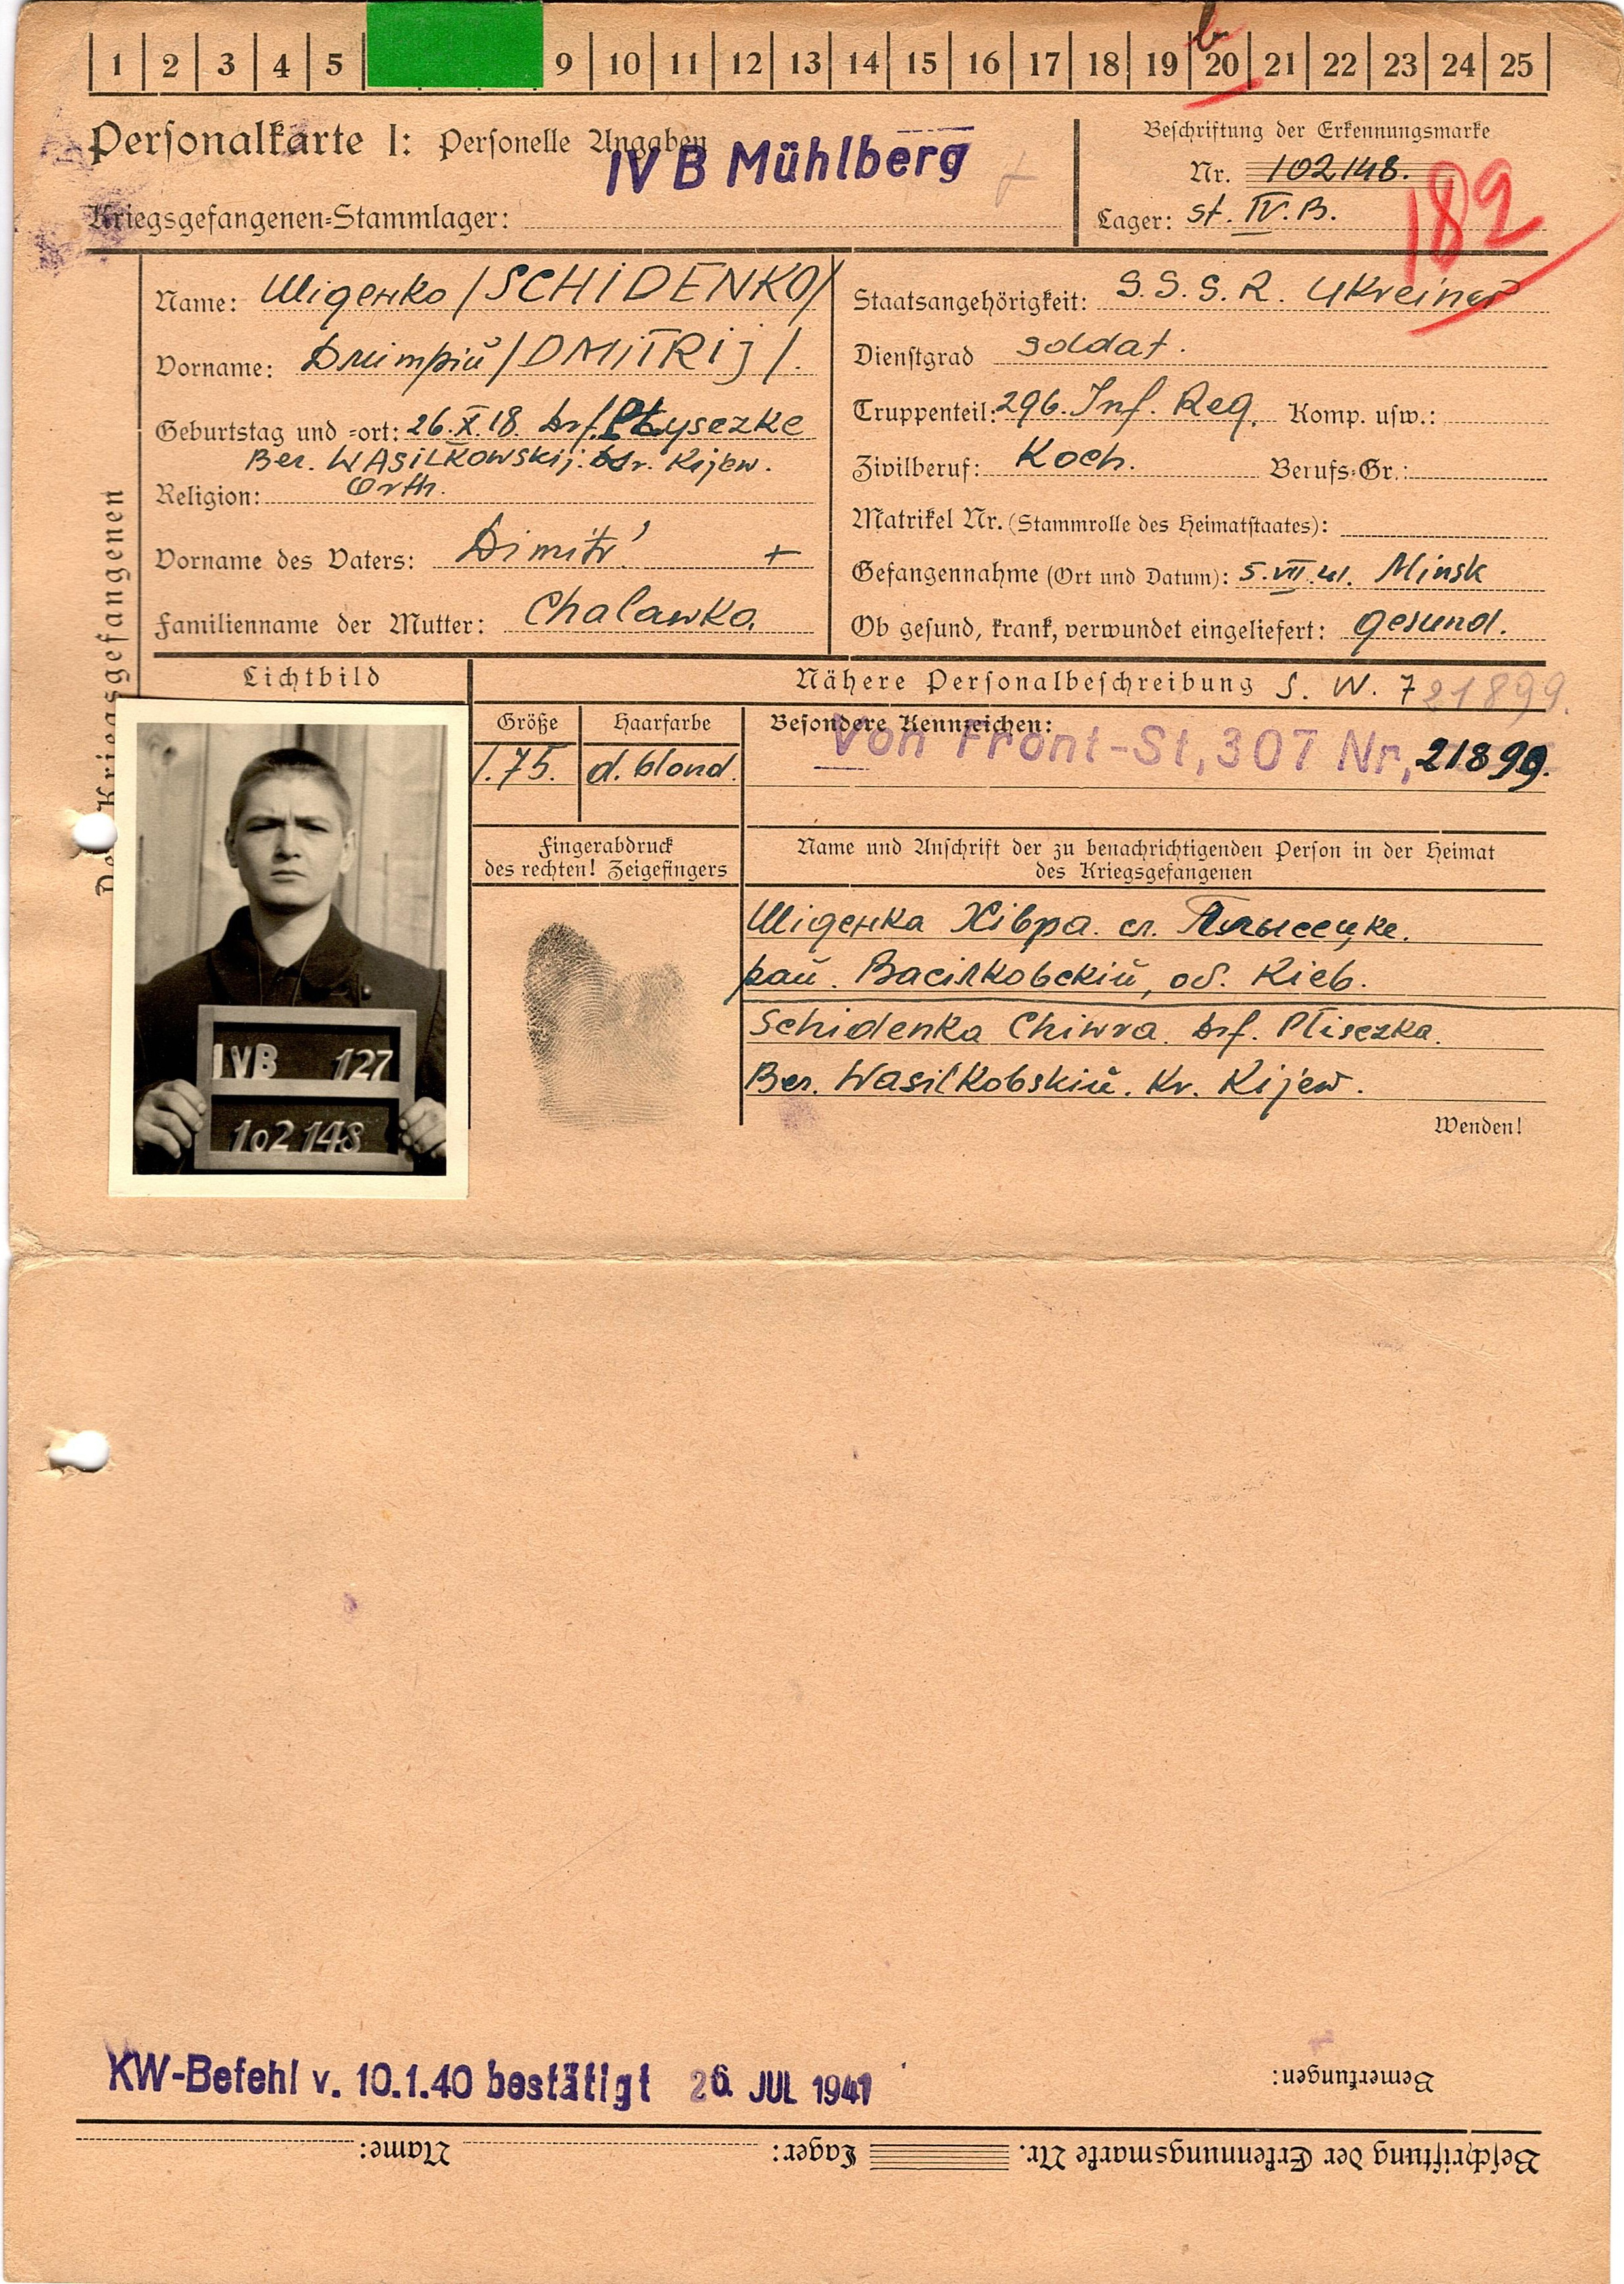 1 2 3 4 5 9 10 11 12 13 14 15 16 17 18 19 20 21 22 23 24 25
Personalkarte I: Personelle Angaben
IV B Mühlberg
Kriegsgefangenen-Stammlager:
Beschriftung der Erkennungsmarke
Nr. 102148.
Lager: St. IV. B.
182
Des Kriegsgefangenen
Name: Шиденко /SCHIDENKO/
Vorname: Дмитрий /DMITRIJ/.
Geburtstag und -ort: 26.X.18. Drf. Plysezke
Ber. WASILKOWSKIJ. Kijew.
Religion: Orth.
Vorname des Vaters: Dimitr' +
Familienname der Mutter: Chalawka.
Staatsangehörigkeit: S.S.S.R. Ukreiner
Dienstgrad Soldat.
Truppenteil: 296. Inf. Reg. Komp. usw.:
Zivilberuf: Koch. Berufs-Gr.:
Matrikel Nr. (Stammrolle des Heimatstaates):
Gefangennahme (Ort und Datum): 5.VII.41. Minsk
Ob gesund, krank, verwundet eingeliefert: gesund.
Lichtbild
Nähere Personalbeschreibung S. W. 7 21899.
Größe Haarfarbe Besondere Kennzeichen:
1.75. d. blond.
Von Front-St, 307 Nr, 21899.
Fingerabdruck
des rechten! Zeigefingers
Name und Anschrift der zu benachrichtigenden Person in der Heimat
des Kriegsgefangenen
Шиденка Хівра. сл. Плысецке.
рай. Васілковский, об. Кіев.
Schidenka Chiwra. Drf. Plisezka.
Ber. Wasilkobskiй. Kr. Kijew.
Wenden!
IVB 127
102 148
KW-Befehl v. 10.1.40 bestätigt 26. JUL 1941
Bemerkungen:
Beschriftung der Erkennungsmarke Nr. Lager: Name: